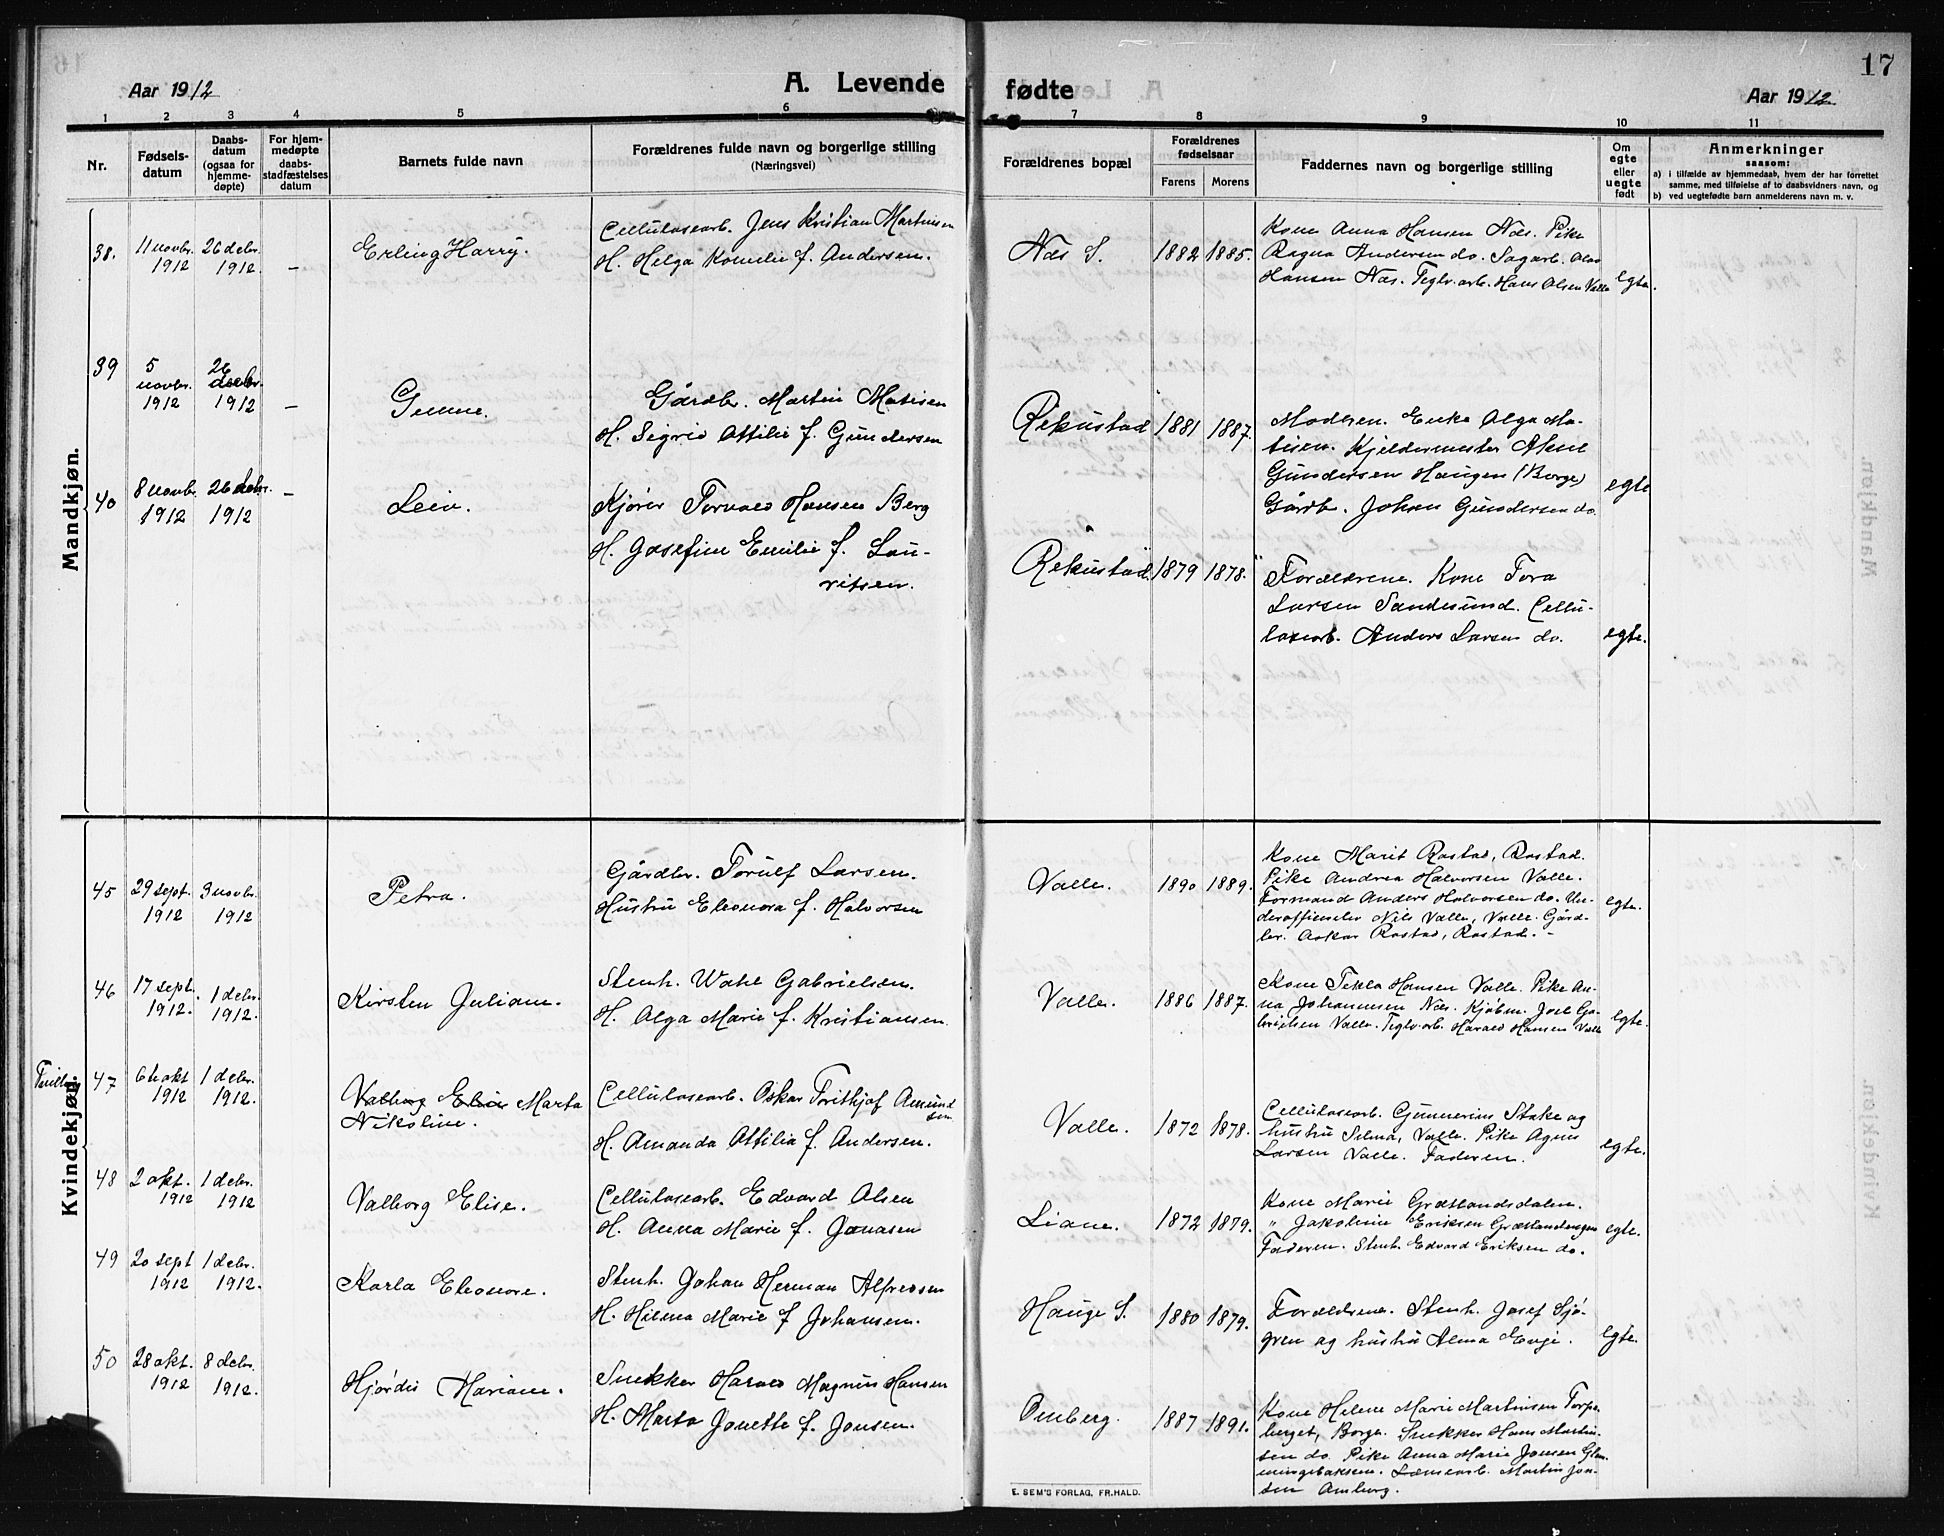 17
Aar 1912
A. Levende
fødte
Aar 1912
1 2 3 4 5 6 7 8 9 10 11
Nr.
Fødsels-
datum
Daabs-
datum
(ogsaa for
hjemme-
døpte)
For hjem-
medøpte
daabs-
stadfæstelses
datum
Barnets fulde navn
Forældrenes fulde navn og borgerlige stilling
(Næringsvei)
Forældrenes bopæl
Forældrenes
fødselsaar
Farens Morens
Faddernes navn og borgerlige stilling
Om
egte
eller
uegte
født
Anmerkninger
saasom:
a) i tilfælde av hjemmedaab, hvem der har forrettet
samme, med tilføielse af to daabsvidners navn, og
b) ved uegtefødte barn anmelderens navn m. v.
Mandkjøn.
38. 11 novbr. 1912 26 debr. 1912. – Erling Harry.
Cellulosearb. Jens Kristian Martinsen
H. Helga Kornelie f. Andersen.
Næs S. 1882 1885.
Kone Anna Hansen Næs. Pike
Ragna Andersen do. Sagarb. Olav
Hansen Næs. Teglv.arb. Hans Olsen Valle
egte.
39 5 novbr. 1912 26 decbr. 1912 –
Gunne.
Gårdbr. Martin Matisen
H. Sigrid Attilie f. Gundersen
Rekustad 1881 1887.
Modren. Enke Olga Ma-
tisen. Kjeldermester Aksel
Gundersen Haugen (Borge)
Gårdb. Johan Gundersen do.
egte
40 8 novbr. 1912 26 debr. 1912 –
Leiv.
Kjører Torvald Hansen Berg
H. Josefine Emilie f. Lau-
ritsen.
Rekustad 1879 1878.
Forældrene. Kone Tora
Larsen Sandesund. Cellu-
losearb. Anders Larsen do.
egte.
Kvindekjøn.
45 29 sept. 1912 3 novbr. 1912
Petra.
Gårdbr. Torulf Larsen.
Hustru Eleonora f. Halvorsen
Valle. 1890 1889.
Kone Marit Rostad, Rostad.
Pike Andrea Halvorsen Valle.
Formand Anders Halvorsen do. Un-
derofficieler Nils Valle, Valle. Gård-
br. Oskar Rostad, Rostad. –
egte.
46 17 sept. 1912. 1 debr. 1912.
Kirsten Juliane.
Stenh. Wahl Gabrielsen.
H. Olga Marie f. Kristiansen.
Valle. 1886 1887.
Kone Tekla Hansen Valle. Pike An-
na Johannesen Næs. Kjøbm. Joel Ga-
brielsen Valle. Teglv.arb. Harald Hansen Valle
egte.
Tvilling
47 6te okt 1912 1 debr. 1912.
Valborg Elise Marta
Nikoline.
Celluloseearb. Oskar Frithjof Amund
sen
H. Amanda Attilia f. Andersen.
Valle. 1872 1878.
Cellulosearb. Gunnerius Stake og
hustru Selma, Valle. Pike Agnes
Larsen Valle. Faderen.
egte.
48 2 okt. 1912 1 debr. 1912
Valborg Elise.
Cellulosearb. Edvard Olsen
H. Anna Marie f. Jonasen
Liane. 1872 1879.
Kone Marie Græslandsdalen.
" Jakobine Eriksen Græslandsengen
Faderen. Stenh. Edvard Eriksen do.
egte.
49 20 sept 1912 1 debr. 1912.
Karla Eleonore.
Stenh. Johan Herman Alfredsen
H. Hilma Marie f Johansen.
Hauge S. 1880 1879.
Forældrene. Stenh. Josef Sjø-
gren og hustru Alma Enge.
egte.
50 28 okt. 1912 8 debr. 1912.
Hjørdis Mariane.
Snekker Harald Magnus Hansen
H. Marta Jonette f. Jonsen.
Omberg. 1887 1891.
Kone Helene Marie Martinsen Torpe-
berget, Borge. Snekker Hans Martin-
sen do. Pike Anna Marie Jonsen Glem-
mingebakken. Lænsearb. Martin Jon-
sen Omberg.
E. SEM'S FORLAG, FR.HALD.